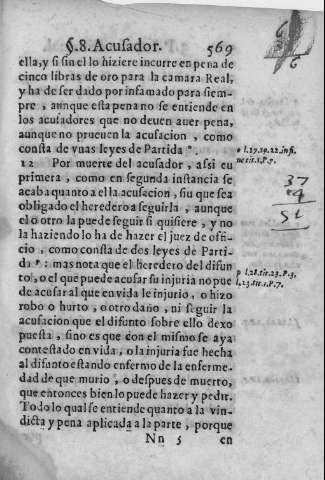 §.8. Acusador. 569
ella, y si sin ello hiziere incurre en pena de
cinco libras de oro para la camara Real,
y ha de ser dado por infamado para siem-
pre, aunque esta pena no se entiende en
los acusadores que no deuen auer pena,
aunque no prueuen la acusacion, como
consta de vnas leyes de Partida º.
o l.17.19.22. infi.
ne tit.1.P.7.
12 Por muerte del acusador, assi eu
primera, como en segunda instancia se
acaba quanto a ella acusacion, siu que sea
obligado el heredero a seguirla, aunque
el o otro la puede seguir si quisiere, y no
la haziendo lo ha de hazer el juez de ofi-
cio, como consta de dos leyes de Parti-
da p: mas nota que el heredero del difun
to, o el que puede acusar su injuria no pue
de acusar al que en vida le injurio, o hizo
robo o hurto, o otro daño, ni seguir la
acusacion que el difunto sobre ello dexo
puesta, sino es que con el mismo se aya
contestado en vida, o la injuria fue hecha
al difunto estando enfermo de la enferme-
dad de que murio, o despues de muerto,
que entonces bien lo puede hazer y pedir.
Todo lo qual se entiende quanto a la vin-
dicta y pena aplicada a la parte, porque
p l.28.tit.23.P.3.
l.23.tit.1.P.7.
37
Nn 5 en